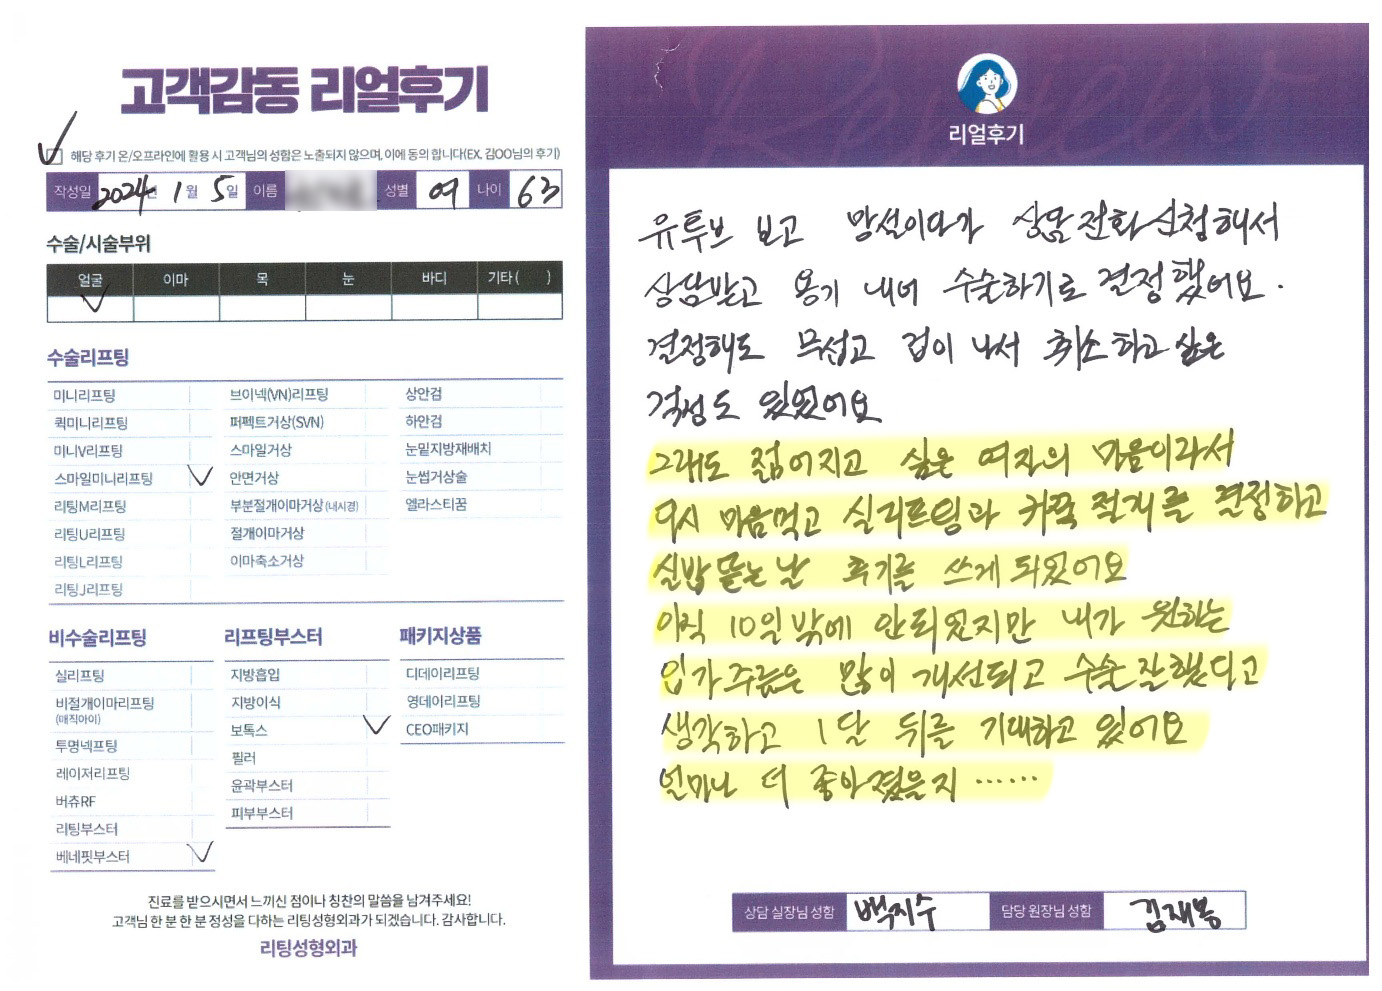 고객감동 리얼후기
해당 후기 온/오프라인에 활용 시 고객님의 성함은 노출되지 않으며, 이에 동의 합니다(EX. 김OO님의 후기)
작성일 2024년 1월 5일 이름 성별 여 나이 63
수술/시술부위
얼굴 이마 목 눈 바디 기타( )
수술리프팅
미니리프팅 브이넥(VN)리프팅 상안검
퀵미니리프팅 퍼펙트거상(SVN) 하안검
미니V리프팅 스마일거상 눈밑지방재배치
스마일미니리프팅 안면거상 눈썹거상술
리팅M리프팅 부분절개이마거상(내시경) 엘라스티꿈
리팅U리프팅 절개이마거상
리팅L리프팅 이마축소거상
리팅J리프팅
비수술리프팅
실리프팅
비절개이마리프팅
(매직아이)
투명넥프팅
레이저리프팅
버츄RF
리팅부스터
베네핏부스터
리프팅부스터
지방흡입
지방이식
보톡스
필러
윤곽부스터
피부부스터
패키지상품
디데이리프팅
영데이리프팅
CEO패키지
진료를 받으시면서 느끼신 점이나 칭찬의 말씀을 남겨주세요!
고객님 한 분 한 분 정성을 다하는 리팅성형외과가 되겠습니다. 감사합니다.
리팅성형외과
Review
리얼후기
유투브 보고 망설이다가 상담전화신청해서
상담받고 용기 내어 수술하기로 결정했어요.
결정해도 무섭고 겁이 나서 취소하고 싶은
걱정도 있었어요
그래도 젊어지고 싶은 여자의 마음이라서
다시 마음먹고 실리프팅과 귀쪽 절개를 결정하고
실밥 뜯는 날 후기를 쓰게 되었어요
아직 10일밖에 안되었지만 내가 원하는
입가주름은 많이 개선되고 수술 잘했다고
생각하고 1달 뒤를 기대하고 있어요
얼마나 더 좋아졌을지 ……
상담 실장님 성함 백지수 담당 원장님 성함 김재봉